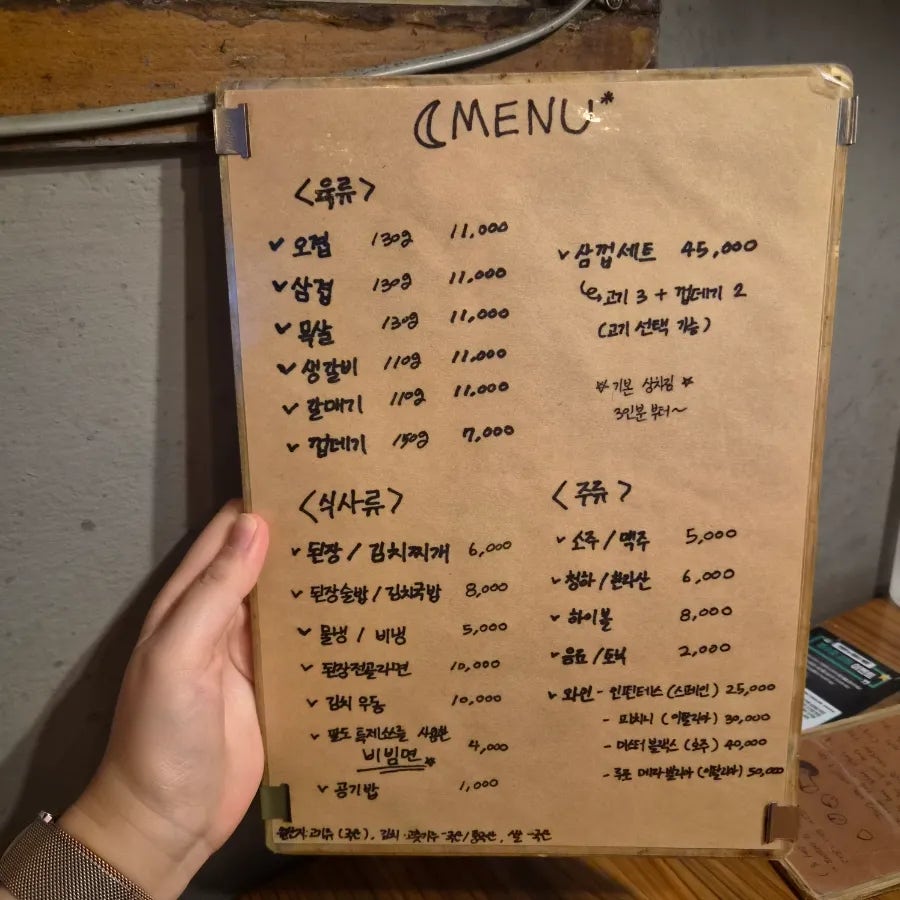 MENU*
<육류>
✓ 오겹 130g 11,000
✓ 삼겹 130g 11,000
✓ 목살 130g 11,000
✓ 생갈비 110g 11,000
✓ 갈매기 110g 11,000
✓ 껍데기 150g 7,000
✓ 삼껍세트 45,000
고기 3 + 껍데기 2
(고기 선택 가능)
☆ 기본 상차림 ☆
3인분 부터~
<식사류>
✓ 된장 / 김치찌개 6,000
✓ 된장술밥 / 김치국밥 8,000
✓ 물냉 / 비냉 5,000
✓ 된장전골라면 10,000
✓ 김치 우동 10,000
✓ 팔도 특제소스를 사용한
비빔면* 4,000
✓ 공기밥 1,000
<주류>
✓ 소주 / 맥주 5,000
✓ 청하 / 한라산 6,000
✓ 하이볼 8,000
✓ 음료 / 토닉 2,000
✓ 와인 - 인핀테스 (스페인) 25,000
- 피치니 (이탈리아) 30,000
- 미스터 블랙스 (호주) 40,000
- (이탈리아) 50,000
원산지: 고기류 (국산), 김치·고춧가루-국산/중국산, 쌀-국산